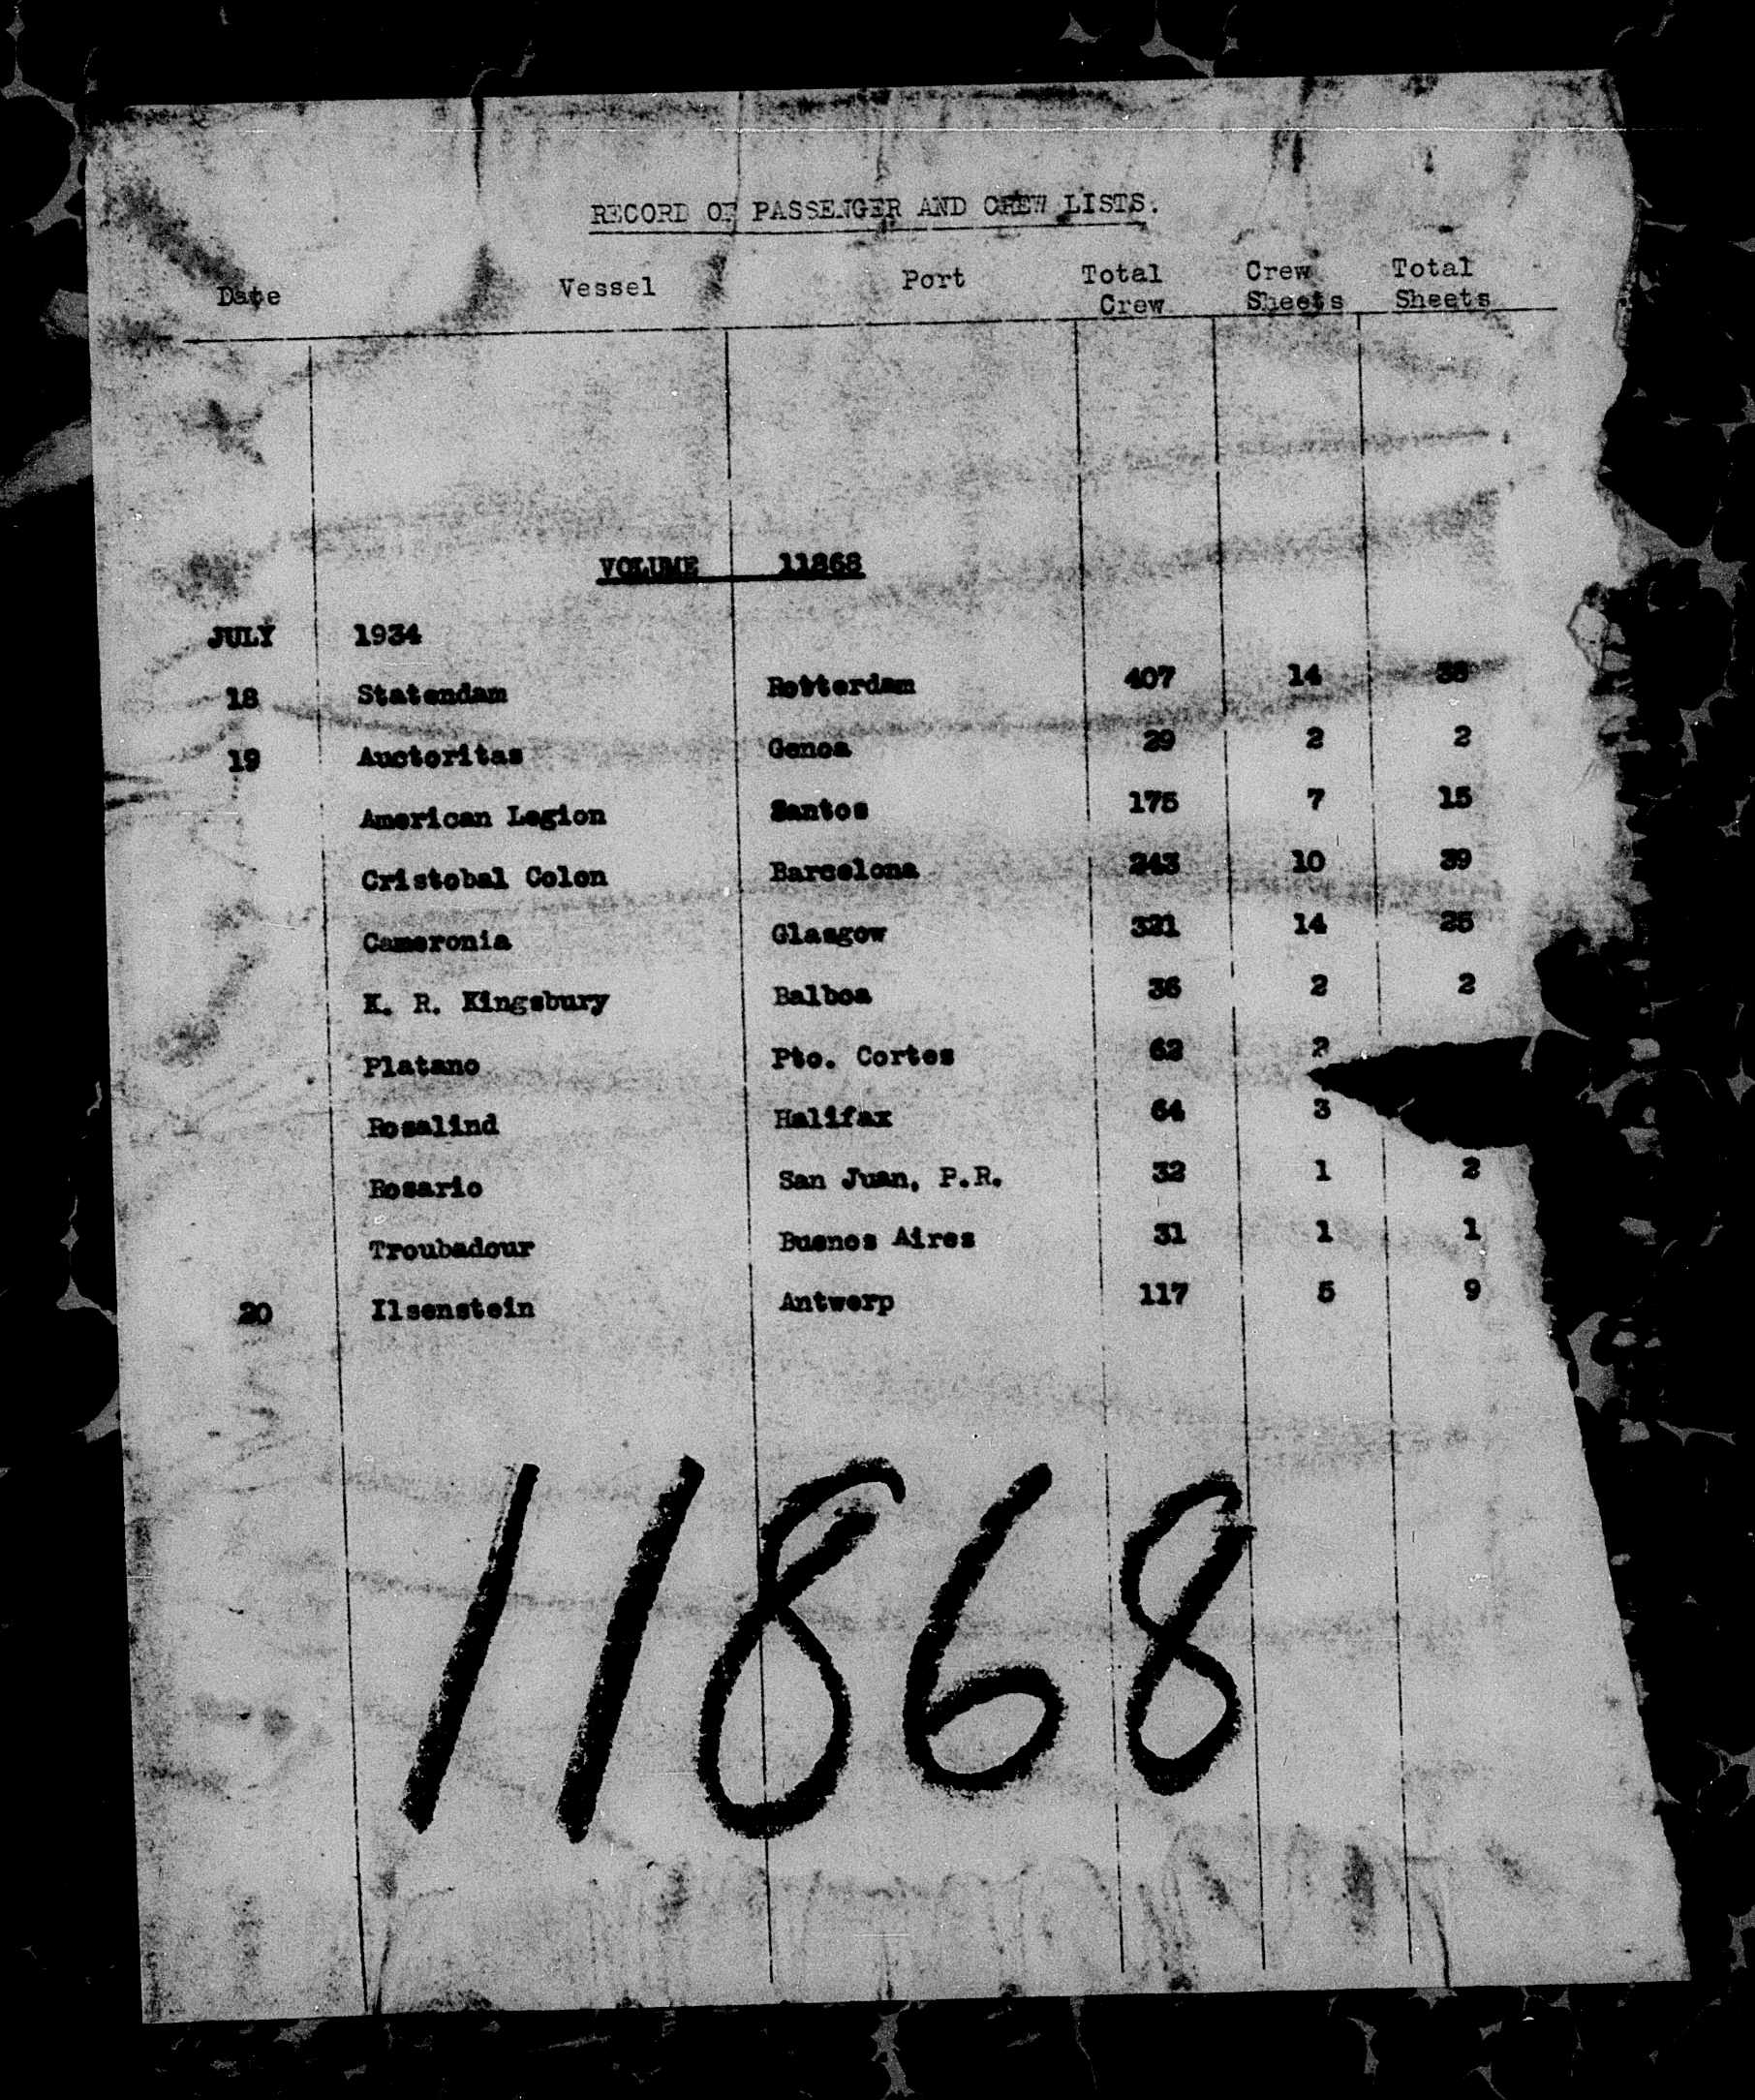 RECORD OF PASSENGER AND CREW LISTS.
Date Vessel Port Total Crew Crew Sheets Total Sheets
VOLUME 11868
JULY 1934
18 Statendam Rotterdam 407 14
19 Auctoritas Genoa 29 2 2
American Legion Santos 175 7 15
Cristobal Colon Barcelona 243 10 39
Cameronia Glasgow 321 14 25
K. R. Kingsbury Balboa 36 2 2
Platano Pto. Cortes 62 2
Rosalind Halifax 64 3
Rosario San Juan, P.R. 32 1 2
Troubadour Buenos Aires 31 1 1
20 Ilsenstein Antwerp 117 5 9
11868